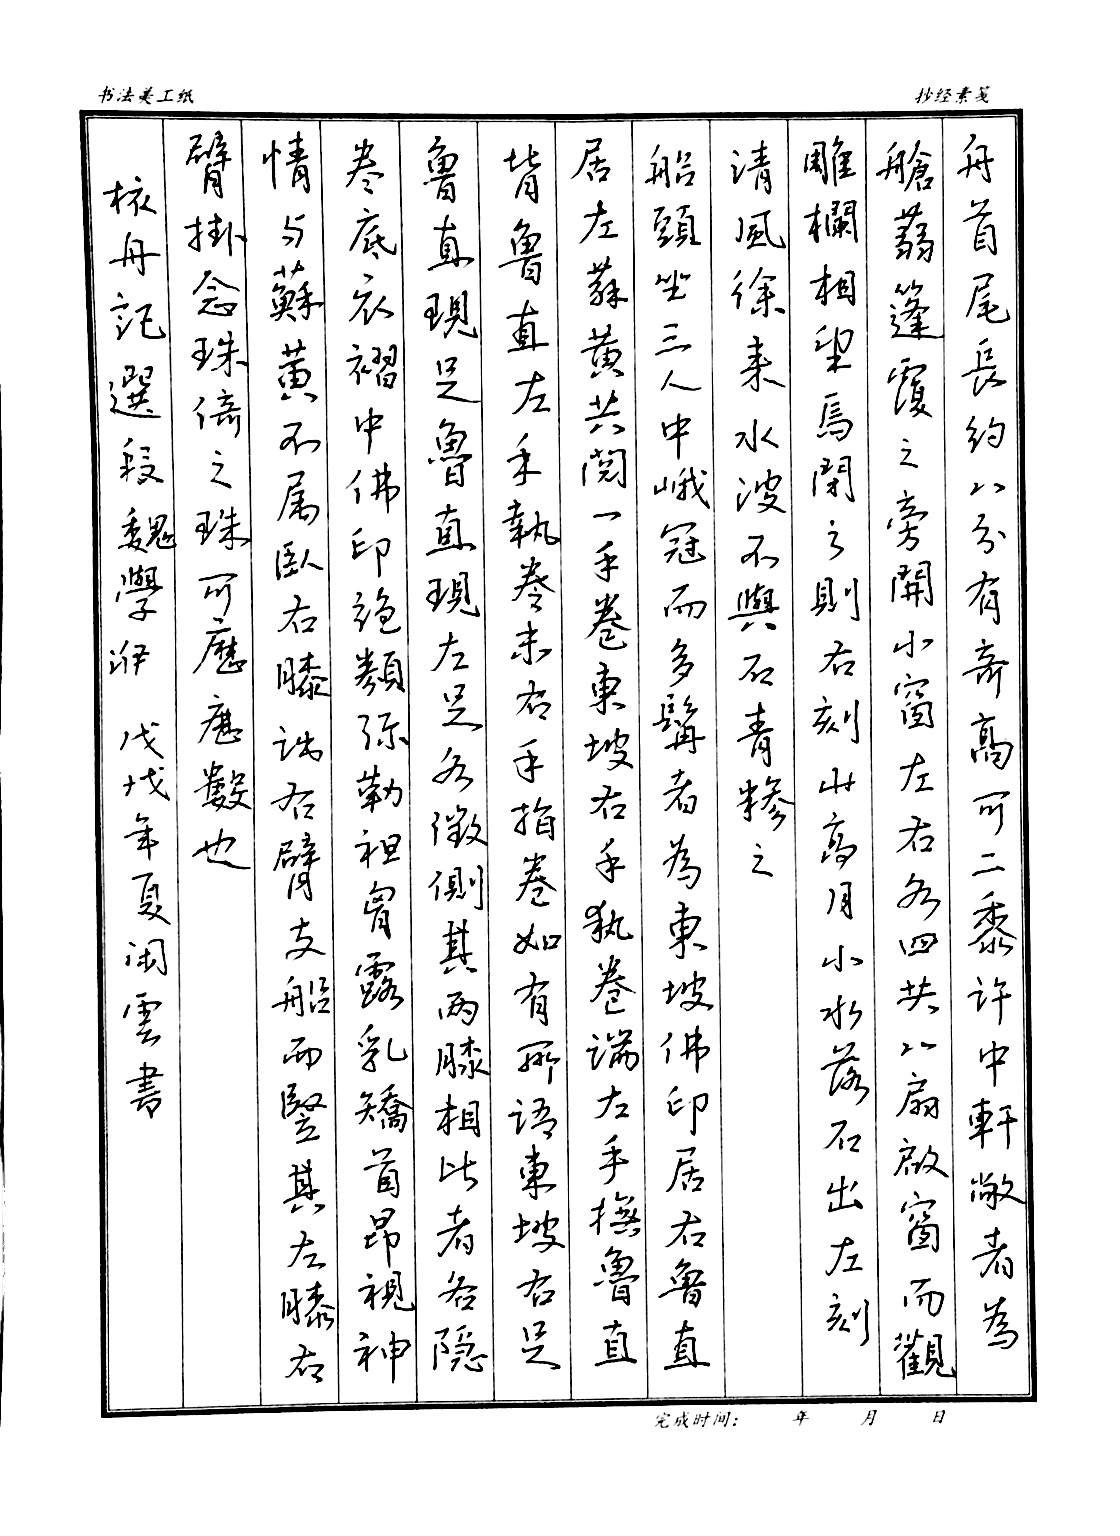 书法美工纸
抄经素笺
舟首尾長約八分有奇高可二黍許中軒敞者為
艙蒻篷覆之旁開小窗左右各四共八扇啟窗而觀
雕欄相望焉閉之則右刻山高月小水落石出左刻
清風徐来水波不興石青糝之
船頭坐三人中峨冠而多髯者為東坡佛印居右魯直
居左蘇黄共閲一手卷東坡右手执卷端左手撫魯直
背魯直左手執卷末右手指卷如有所語東坡右足
魯直現足魯直現左足各微側其兩膝相比者各隐
卷底衣褶中佛印絶類弥勒袒胷露乳矯首昂視神
情与蘇黄不属卧右膝詘右臂支船而竪其左膝右
臂掛念珠倚之珠可歷歷數也
核舟記選段魏學洢 戊戌年夏闲雲書
完成时间： 年 月 日